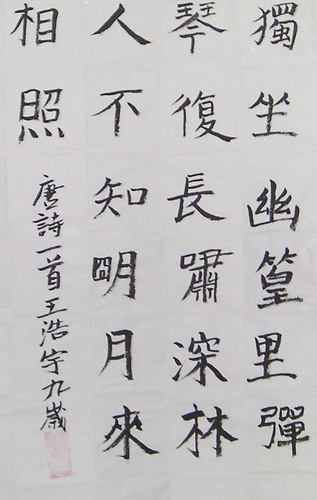 獨坐幽篁里彈
琴復長嘯深林
人不知明月來
相照
唐詩一首王浩宇九歲